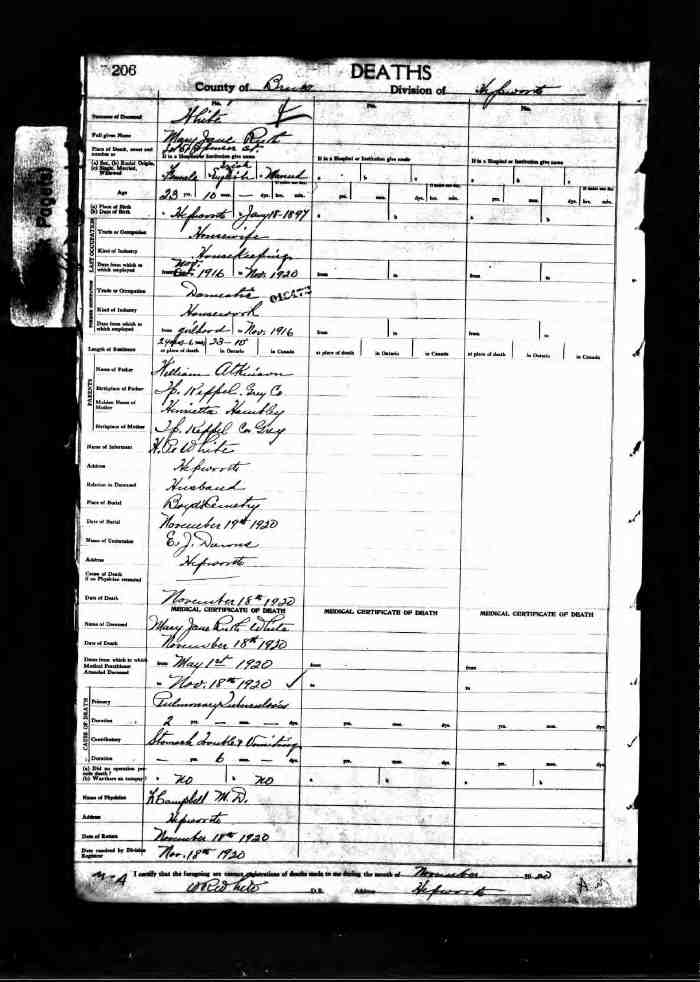 206
DEATHS
County of Bruce Division of Hepworth
No. 1 No. No.
Surname of Deceased White
Full given Name Mary Jane Ruth
Place of Death, street and number or
If in a Hospital or Institution give name If in a Hospital or Institution give name If in a Hospital or Institution give name
(a) Sex, (b) Racial Origin, (c) Single, Married, Widowed Female Irish English Married a b c a b c
Age 23 yrs. 10 mos. — dys. hrs. min. yrs. mos. dys. hrs. min. yrs. mos. dys. hrs. min.
(a) Place of Birth
(b) Date of Birth a Hepworth b Jany 18-1897 a b a b
LAST OCCUPATION
Trade or Occupation Housewife
Kind of Industry Housekeeping
Date from which to which employed from Nov. 1916 to Nov. 1920 from to from to
Trade or Occupation Domestic
Kind of Industry Housework
Date from which to which employed from girlhood to Nov. 1916 from to from to
Length of Residence 23-10
at place of death in Ontario in Canada at place of death in Ontario in Canada at place of death in Ontario in Canada
PARENTS
Name of Father William Atkinson
Birthplace of Father Tp. Keppel, Grey Co
Maiden Name of Mother Henrietta Hambley
Birthplace of Mother Tp. Keppel Co Grey
Name of Informant White
Address Hepworth
Relation to Deceased Husband
Place of Burial Boyd Cemetry
Date of Burial November 19th 1920
Name of Undertaker E. J. Downs
Address Hepworth
Cause of Death if no Physician attended
Date of Death November 18th 1920
MEDICAL CERTIFICATE OF DEATH MEDICAL CERTIFICATE OF DEATH MEDICAL CERTIFICATE OF DEATH
Name of Deceased Mary Jane Ruth White
Date of Death November 18th 1920
Dates from which to which Medical Practitioner Attended Deceased from May 1st 1920 from from
to Nov. 18th 1920 to to
CAUSE OF DEATH
Primary Pulmonary Tuberculosis
Duration 2 yrs. — mos. — dys. yrs. mos. dys. yrs. mos. dys.
Contributory Stomach Trouble & Vomiting
Duration — yrs. 6 mos. — dys. yrs. mos. dys. yrs. mos. dys.
(a) Did an operation precede death?
(b) Was there an autopsy? a no b no a b a b
Name of Physician Campbell M.D.
Address Hepworth
Date of Return November 18th 1920
Date received by Division Registrar Nov. 18th 1920
I certify that the foregoing are correct registrations of deaths made to me during the month of November 1920
W R White D.R. Address Hepworth